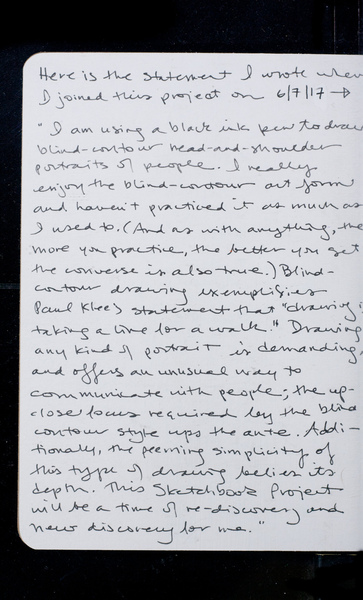 Here is the statement I wrote when
I joined this project on 6/7/17 →
"I am using a black ink pen to draw
blind-contour head-and-shoulder
portraits of people. I really
enjoy the blind-contour art form
and haven't practiced it as much as
I used to. (And as with anything, the
more you practice, the better you get
the converse is also true.) Blind-
contour drawing exemplifies
Paul Klee's statement that "drawing is
taking a line for a walk." Drawing
any kind of portrait is demanding,
and offers an unusual way to
communicate with people; the up-
close focus required by the blind
contour style ups the ante. Addi-
tionally, the seeming simplicity of
this type of drawing belies its
depth. This Sketchbook Project
will be a time of re-discovery and
new discovery for me."